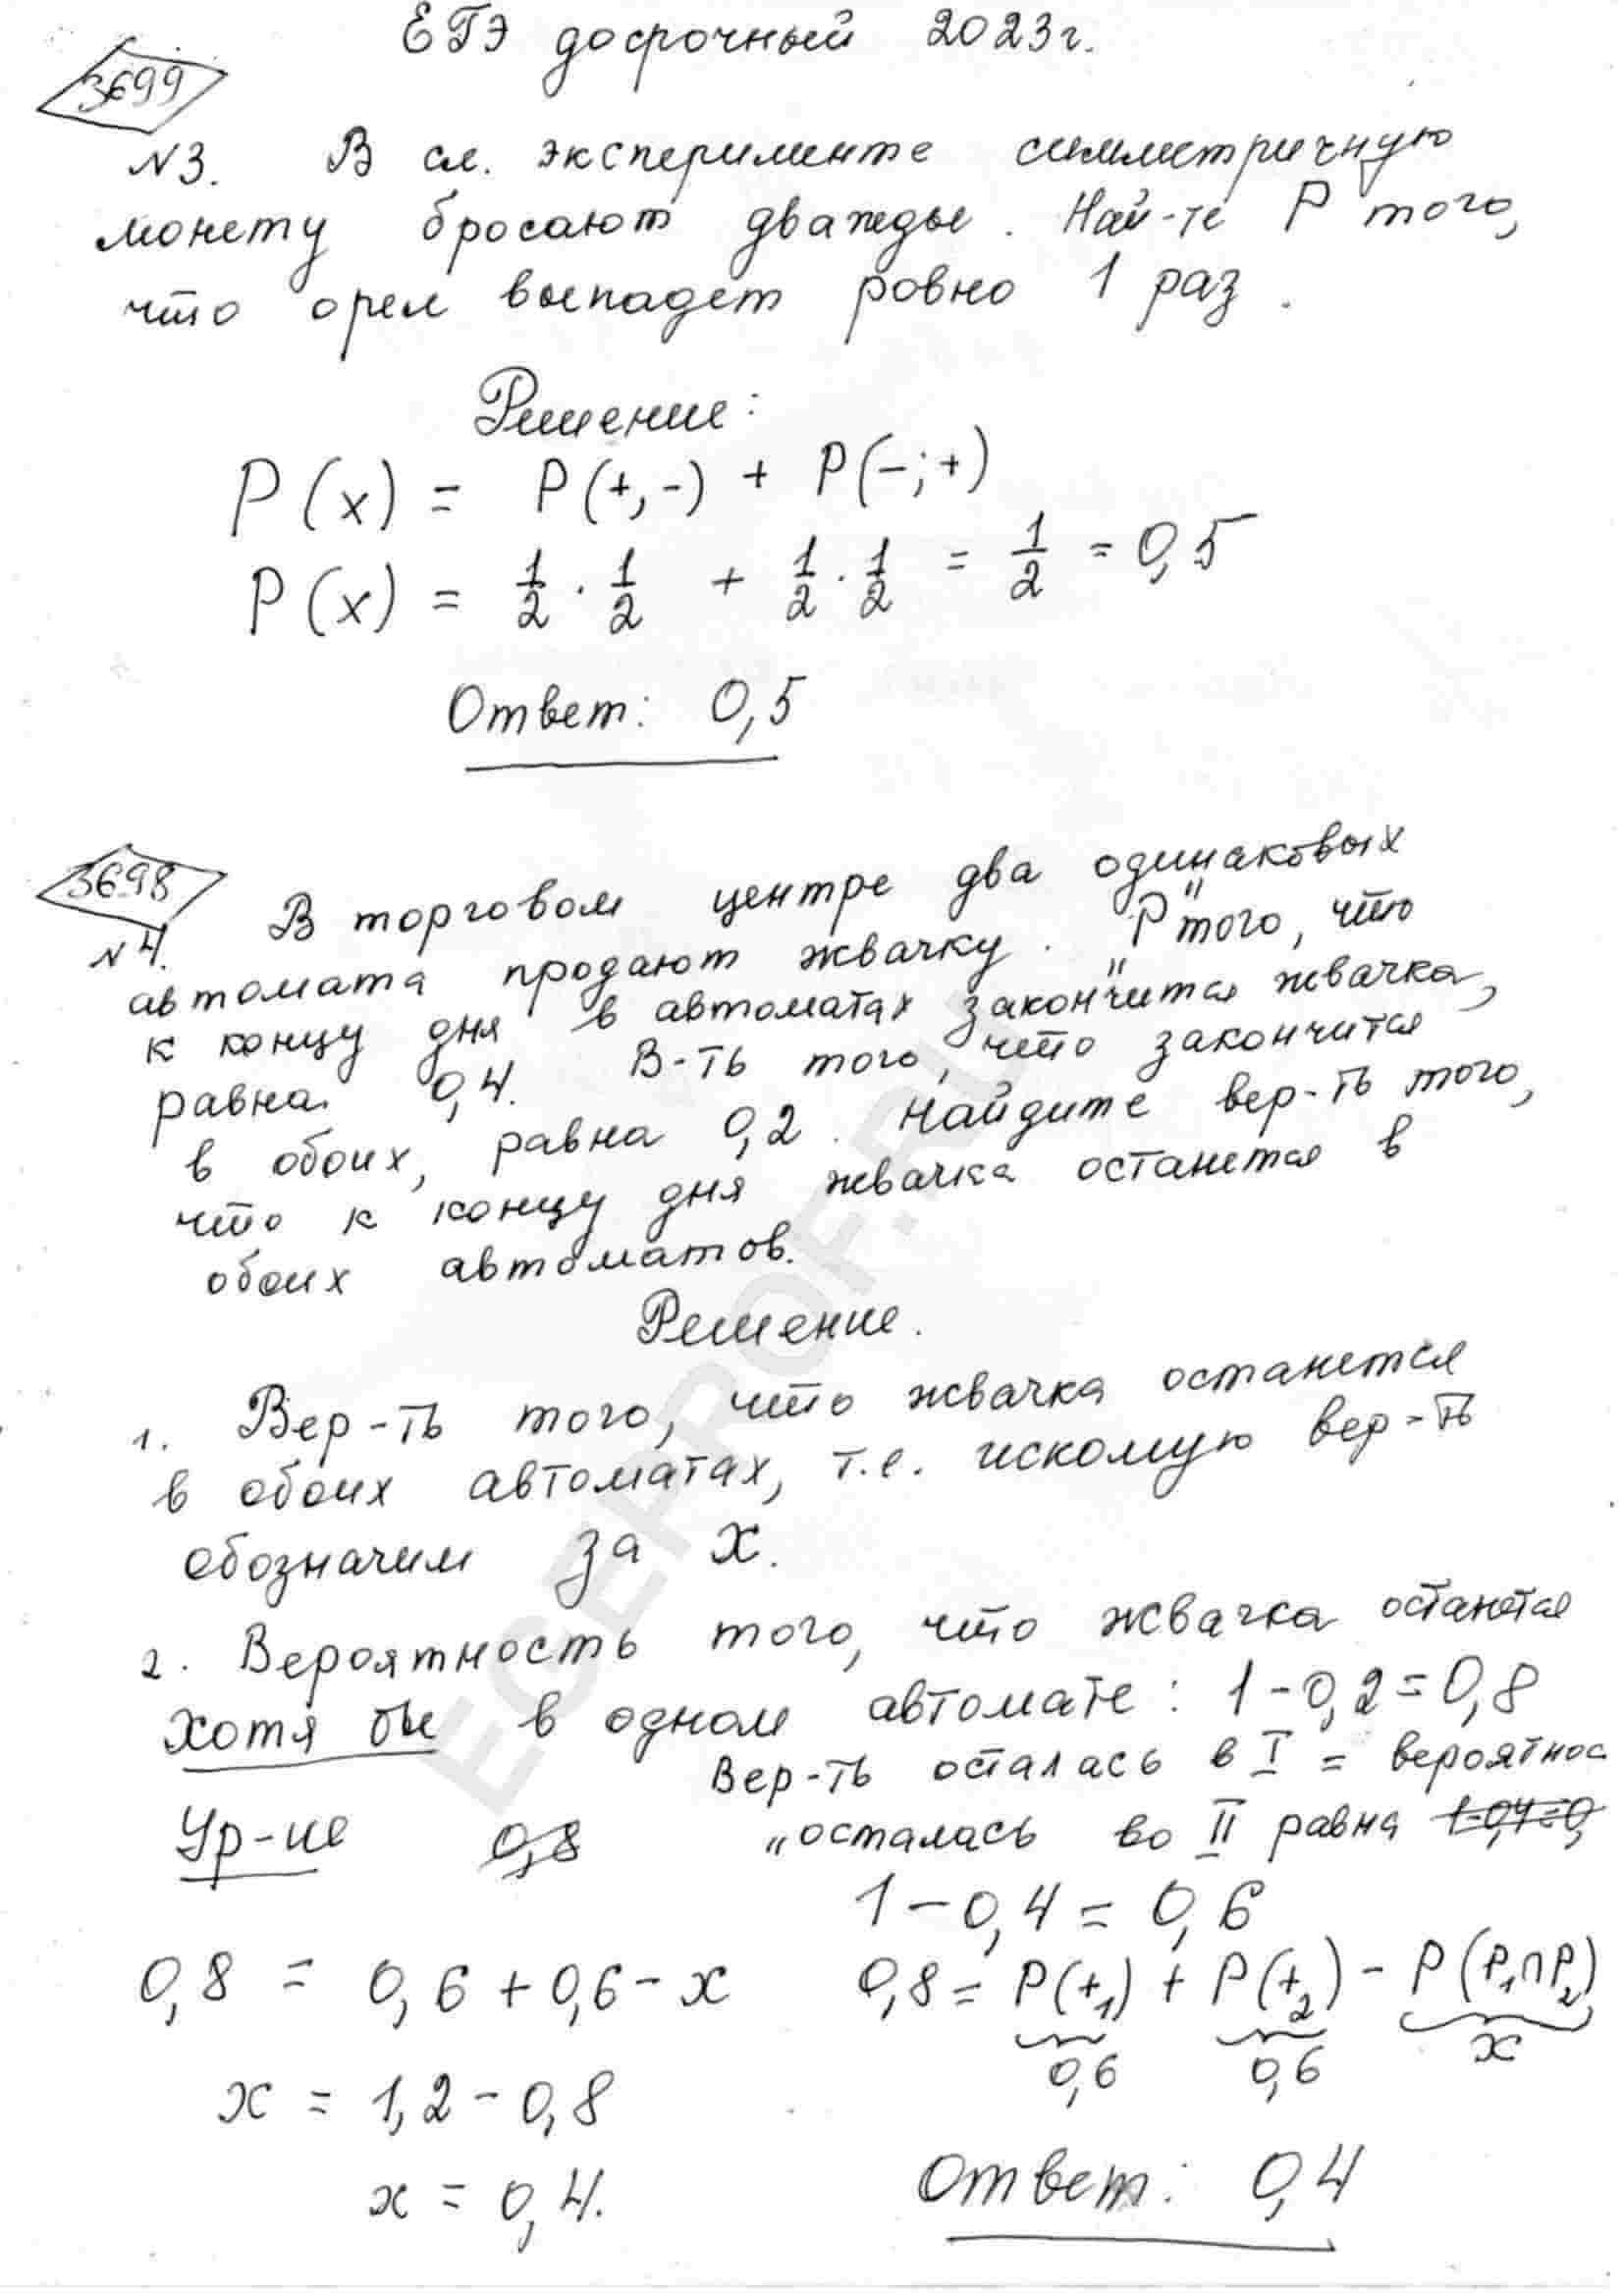 ЕГЭ досрочный 2023г.
3699
№3. В сл. эксперименте симметричную
монету бросают дважды. Най-те P того,
что орел выпадет ровно 1 раз.
Решение:
P(x) = P(+,-) + P(-;+)
P(x) = 1/2 · 1/2 + 1/2 · 1/2 = 1/2 = 0,5
Ответ: 0,5
3698
№4. В торговом центре два одинаковых
автомата продают жвачку. "P" того, что
к концу дня в автоматах закончится жвачка,
равна 0,4. В-ть того, что закончится
в обоих, равна 0,2. Найдите вер-ть того,
что к концу дня жвачка останется в
обоих автоматов.
Решение.
1. Вер-ть того, что жвачка останется
в обоих автоматах, т.е. искомую вер-ть
обозначим за x.
2. Вероятность того, что жвачка останется
хотя бы в одном автомате: 1-0,2=0,8
Вер-ть осталась в I = вероятнос
Ур-ие 0,8 "осталась во II равна 1-0,4=0,
1-0,4=0,6
0,8 = 0,6+0,6-x 0,8 = P(+₁) + P(+₂) - P(P₁∩P₂)
0,6 0,6 x
x = 1,2-0,8
x = 0,4.
Ответ: 0,4
EGEPROF.RU